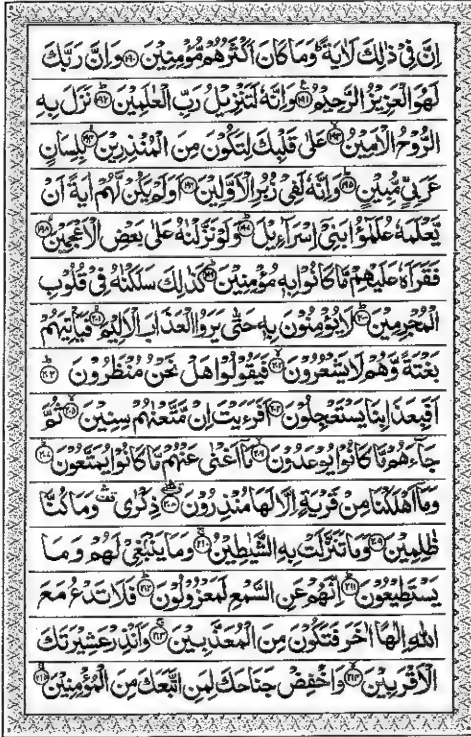 اِنَّ فِیْ ذٰلِكَ لَاٰیَةً ؕ وَمَا كَانَ اَكْثَرُهُمْ مُّؤْمِنِیْنَ ﴿۱۹۰﴾ وَاِنَّ رَبَّكَ
لَهُوَ الْعَزِیْزُ الرَّحِیْمُ ﴿۱۹۱﴾ وَاِنَّهٗ لَتَنْزِیْلُ رَبِّ الْعٰلَمِیْنَ ﴿۱۹۲﴾ نَزَلَ بِهِ
الرُّوْحُ الْاَمِیْنُ ﴿۱۹۳﴾ عَلٰی قَلْبِكَ لِتَكُوْنَ مِنَ الْمُنْذِرِیْنَ ﴿۱۹۴﴾ بِلِسَانٍ
عَرَبِیٍّ مُّبِیْنٍ ﴿۱۹۵﴾ وَاِنَّهٗ لَفِیْ زُبُرِ الْاَوَّلِیْنَ ﴿۱۹۶﴾ اَوَلَمْ یَكُنْ لَّهُمْ اٰیَةً اَنْ
یَّعْلَمَهٗ عُلَمٰٓؤُا بَنِیْۤ اِسْرَآءِیْلَ ﴿۱۹۷﴾ وَلَوْ نَزَّلْنٰهُ عَلٰی بَعْضِ الْاَعْجَمِیْنَ ﴿۱۹۸﴾
فَقَرَاَهٗ عَلَیْهِمْ مَّا كَانُوْا بِهٖ مُؤْمِنِیْنَ ﴿۱۹۹﴾ كَذٰلِكَ سَلَكْنٰهُ فِیْ قُلُوْبِ
الْمُجْرِمِیْنَ ﴿۲۰۰﴾ لَا یُؤْمِنُوْنَ بِهٖ حَتّٰی یَرَوُا الْعَذَابَ الْاَلِیْمَ ﴿۲۰۱﴾ فَیَاْتِیَهُمْ
بَغْتَةً وَّهُمْ لَا یَشْعُرُوْنَ ﴿۲۰۲﴾ فَیَقُوْلُوْا هَلْ نَحْنُ مُنْظَرُوْنَ ﴿۲۰۳﴾
اَفَبِعَذَابِنَا یَسْتَعْجِلُوْنَ ﴿۲۰۴﴾ اَفَرَءَیْتَ اِنْ مَّتَّعْنٰهُمْ سِنِیْنَ ﴿۲۰۵﴾ ثُمَّ
جَآءَهُمْ مَّا كَانُوْا یُوْعَدُوْنَ ﴿۲۰۶﴾ مَاۤ اَغْنٰی عَنْهُمْ مَّا كَانُوْا یُمَتَّعُوْنَ ﴿۲۰۷﴾
وَمَاۤ اَهْلَكْنَا مِنْ قَرْیَةٍ اِلَّا لَهَا مُنْذِرُوْنَ ﴿۲۰۸﴾ ذِكْرٰی ۛ وَمَا كُنَّا
ظٰلِمِیْنَ ﴿۲۰۹﴾ وَمَا تَنَزَّلَتْ بِهِ الشَّیٰطِیْنُ ﴿۲۱۰﴾ وَمَا یَنْۢبَغِیْ لَهُمْ وَمَا
یَسْتَطِیْعُوْنَ ﴿۲۱۱﴾ اِنَّهُمْ عَنِ السَّمْعِ لَمَعْزُوْلُوْنَ ﴿۲۱۲﴾ فَلَا تَدْعُ مَعَ
اللهِ اِلٰهًا اٰخَرَ فَتَكُوْنَ مِنَ الْمُعَذَّبِیْنَ ﴿۲۱۳﴾ وَاَنْذِرْ عَشِیْرَتَكَ
الْاَقْرَبِیْنَ ﴿۲۱۴﴾ وَاخْفِضْ جَنَاحَكَ لِمَنِ اتَّبَعَكَ مِنَ الْمُؤْمِنِیْنَ ﴿۲۱۵﴾